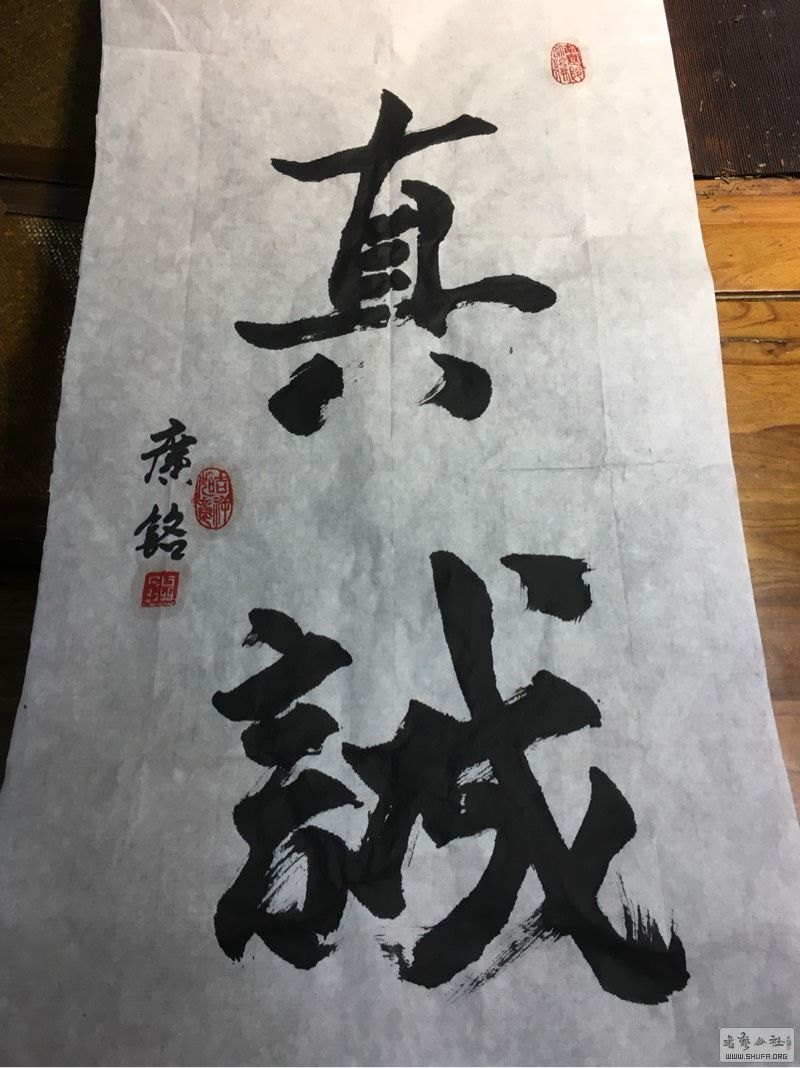 真誠
廣銘
書藝公社
WWW.SHUFA.ORG